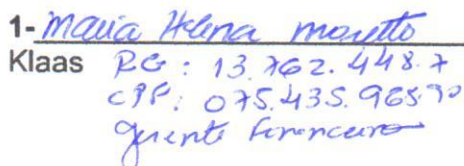 1- Maria Helena Moretto
Klaas RG: 13.762.448.7
CPF: 075.435.968.90
gerente financeiro